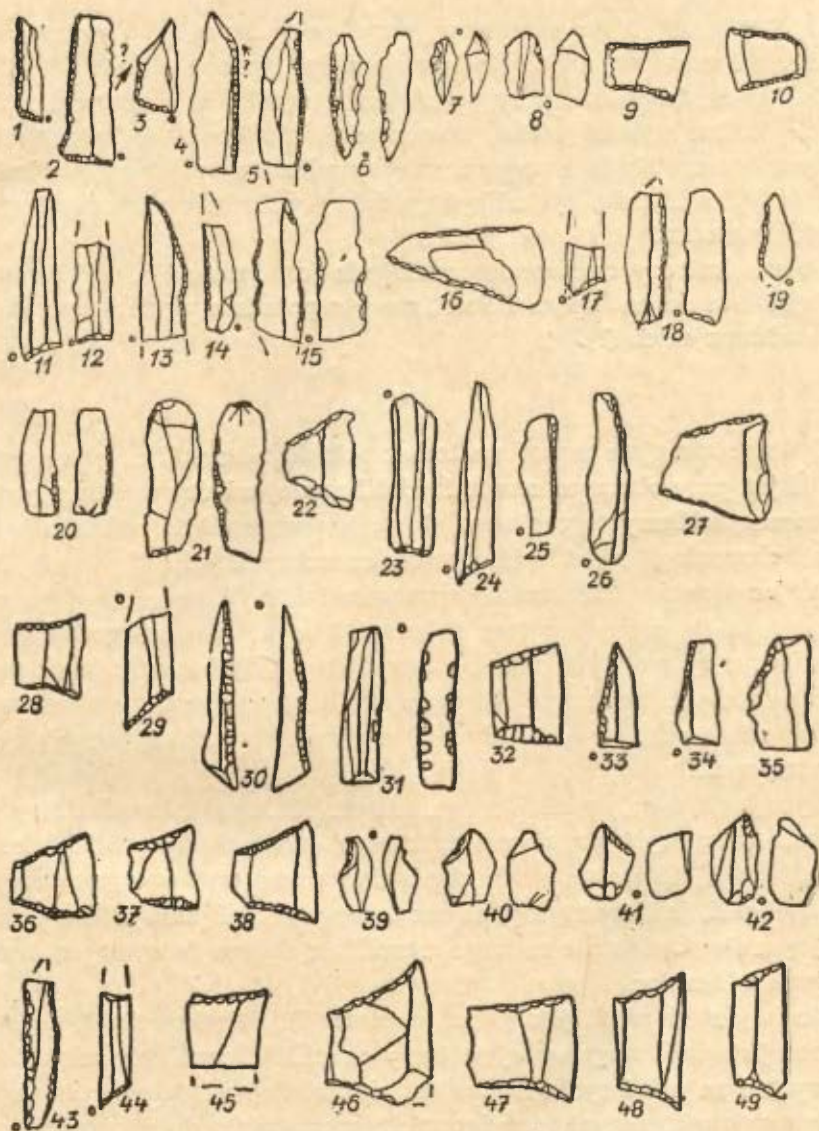 1 2 3 ? 4 ? 5 6 7 8 9 10
11 12 13 14 15 16 17 18 19
20 21 22 23 24 25 26 27
28 29 30 31 32 33 34 35
36 37 38 39 40 41 42
43 44 45 46 47 48 49